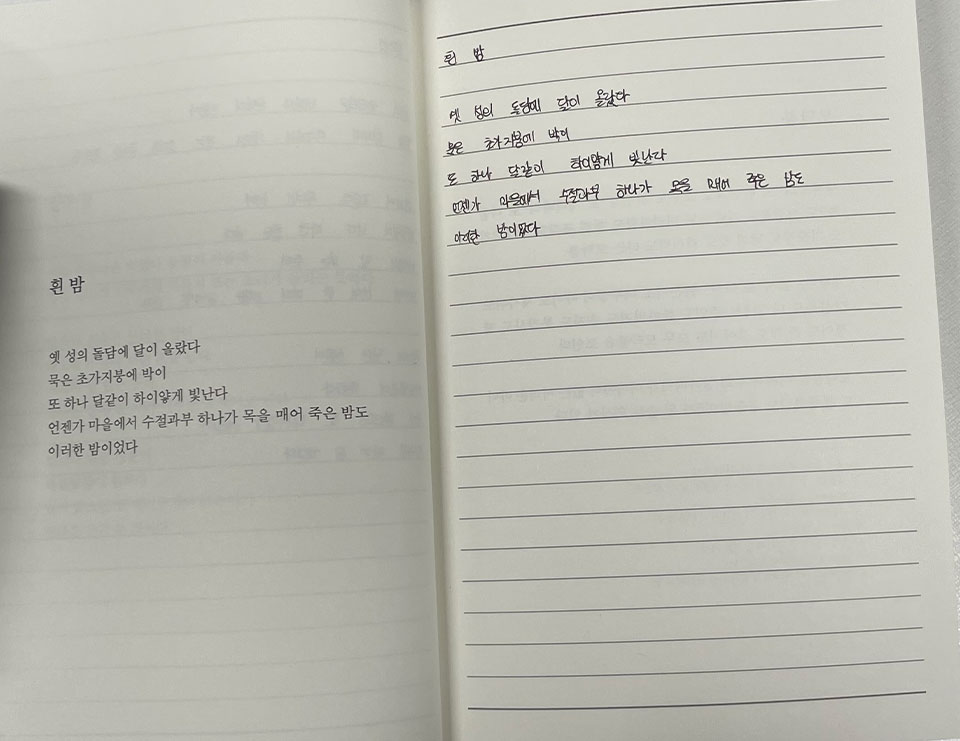 흰 밤
옛 성의 돌담에 달이 올랐다
묵은 초가지붕에 박이
또 하나 달같이 하이얗게 빛난다
언젠가 마을에서 수절과부 하나가 목을 매어 죽은 밤도
이러한 밤이었다
흰 밤
옛 성의 돌담에 달이 올랐다
묵은 초가지붕에 박이
또 하나 달같이 하이얗게 빛난다
언젠가 마을에서 수절과부 하나가 목을 매어 죽은 밤도
이러한 밤이었다